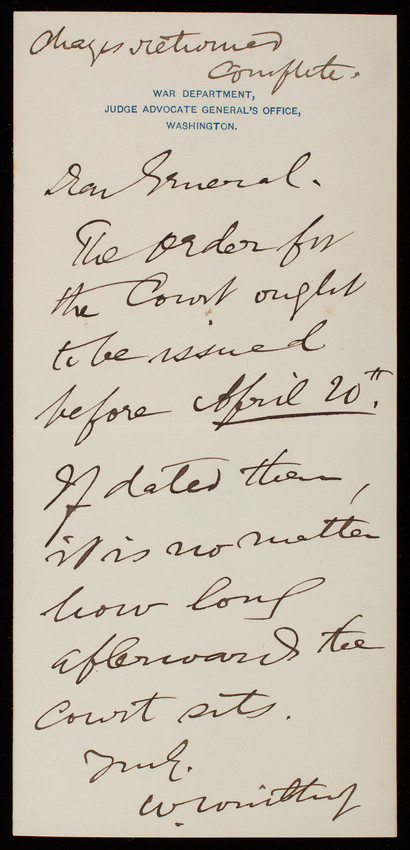 Chages returned
Complete.
WAR DEPARTMENT,
JUDGE ADVOCATE GENERAL'S OFFICE,
WASHINGTON.
Dear General.
The order for
the Court ought
to be issued
before April 20th.
If dated then,
it is no matter
how long
afterwards the
court sits.
Truly.
W. Winthrop